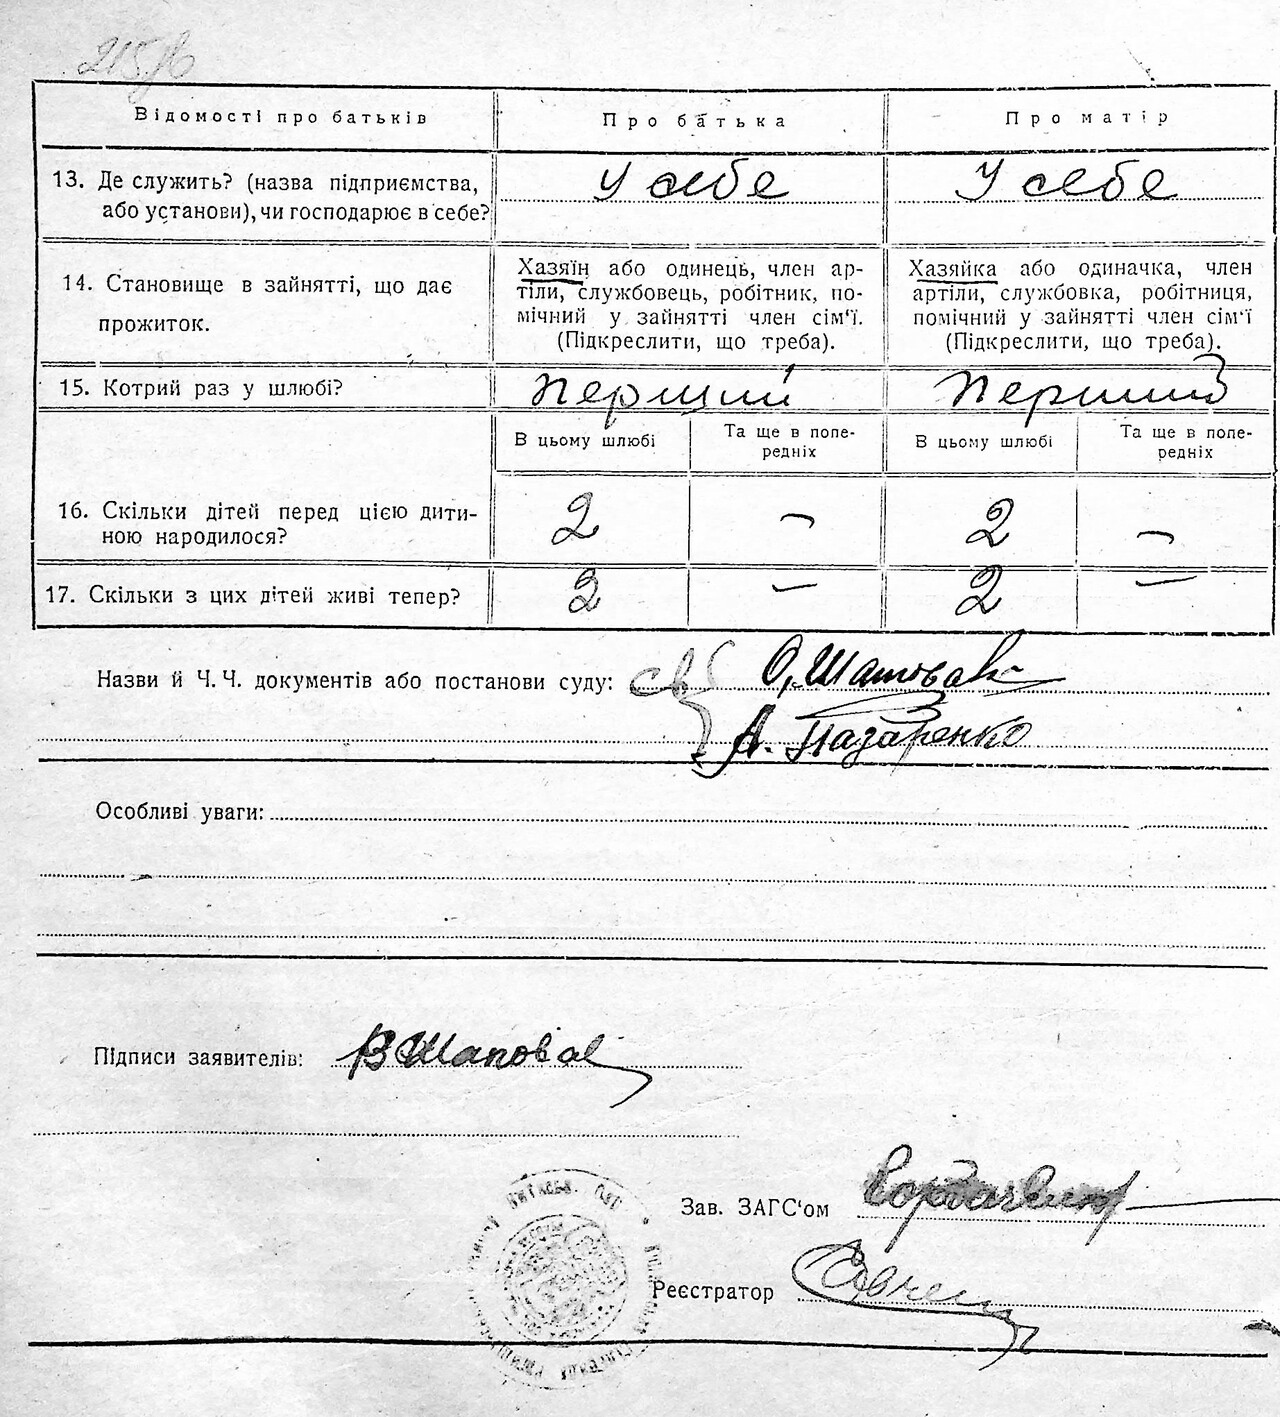 Відомості про батьків
Про батька
Про матір
13. Де служить? (назва підприємства,
або установи), чи господарює в себе?
У себе
У себе
14. Становище в зайнятті, що дає
прожиток.
Хазяїн або одинець, член ар-
тіли, службовець, робітник, по-
мічний у зайнятті член сім'ї.
(Підкреслити, що треба).
Хазяйка або одиначка, член
артіли, службовка, робітниця,
помічний у зайнятті член сім'ї
(Підкреслити, що треба).
15. Котрий раз у шлюбі?
Перший
Перший
В цьому шлюбі
Та ще в попе-
редніх
В цьому шлюбі
Та ще в попе-
редніх
16. Скільки дітей перед цією дити-
ною народилося?
2
—
2
—
17. Скільки з цих дітей живі тепер?
2
—
2
—
Назви й Ч. Ч. документів або постанови суду: св О. Шаповал
А. Назаренко
Особливі уваги:
Підписи заявителів: В Шаповал
Зав. ЗАГС'ом
Реєстратор